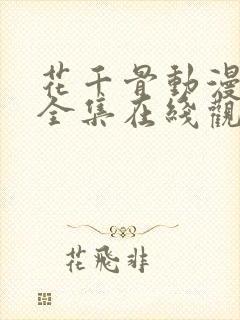 花千骨動漫
全集在綫觀
花飛非